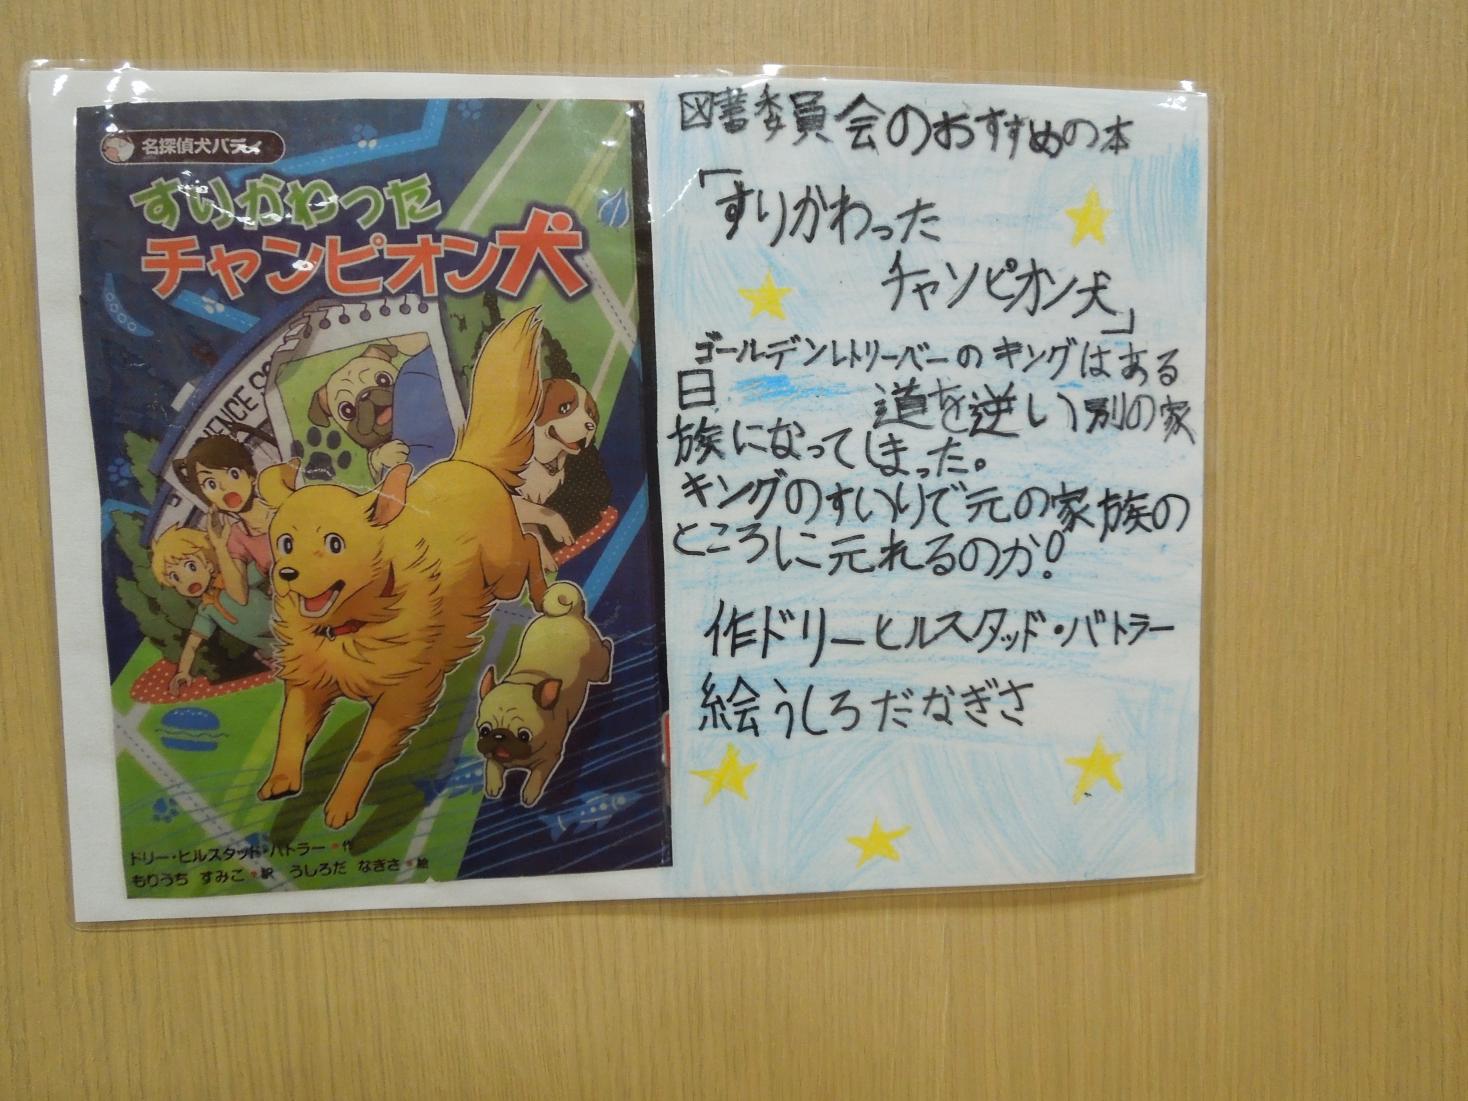 名探偵犬バディ
すりかわった
チャンピオン犬
ドリー・ヒルスタッド・バトラー・作
もりうち すみこ・訳 うしろだ なぎさ・絵
図書委員会のおすすめの本
「すりかわった
チャンピオン犬」
ゴールデンレトリーバーのキングはある
日 道を逆い別の家
族になってしまった。
キングのすいりで元の家族の
ところに元れるのか!
作ドリーヒルスタッド・バトラー
絵うしろだなぎさ